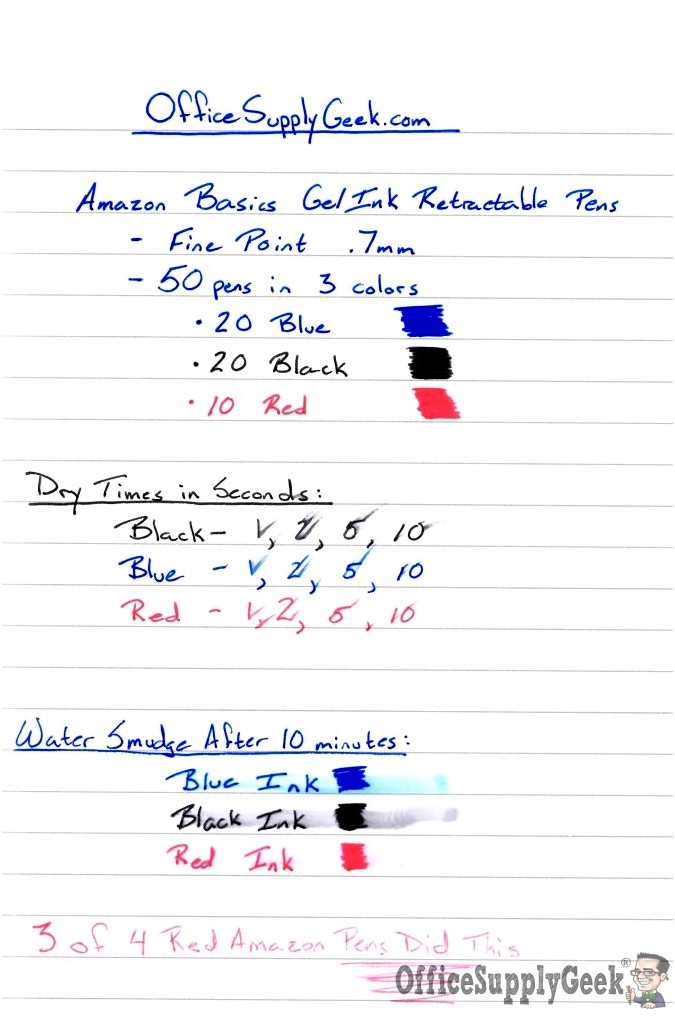 OfficeSupplyGeek.com
Amazon Basics Gel Ink Retractable Pens
- Fine Point .7mm
- 50 pens in 3 colors
• 20 Blue
• 20 Black
• 10 Red
Dry Times in Seconds:
Black - 1, 2, 5, 10
Blue - 1, 2, 5, 10
Red - 1, 2, 5, 10
Water Smudge After 10 minutes:
Blue Ink
Black Ink
Red Ink
3 of 4 Red Amazon Pens Did This
OfficeSupplyGeek®